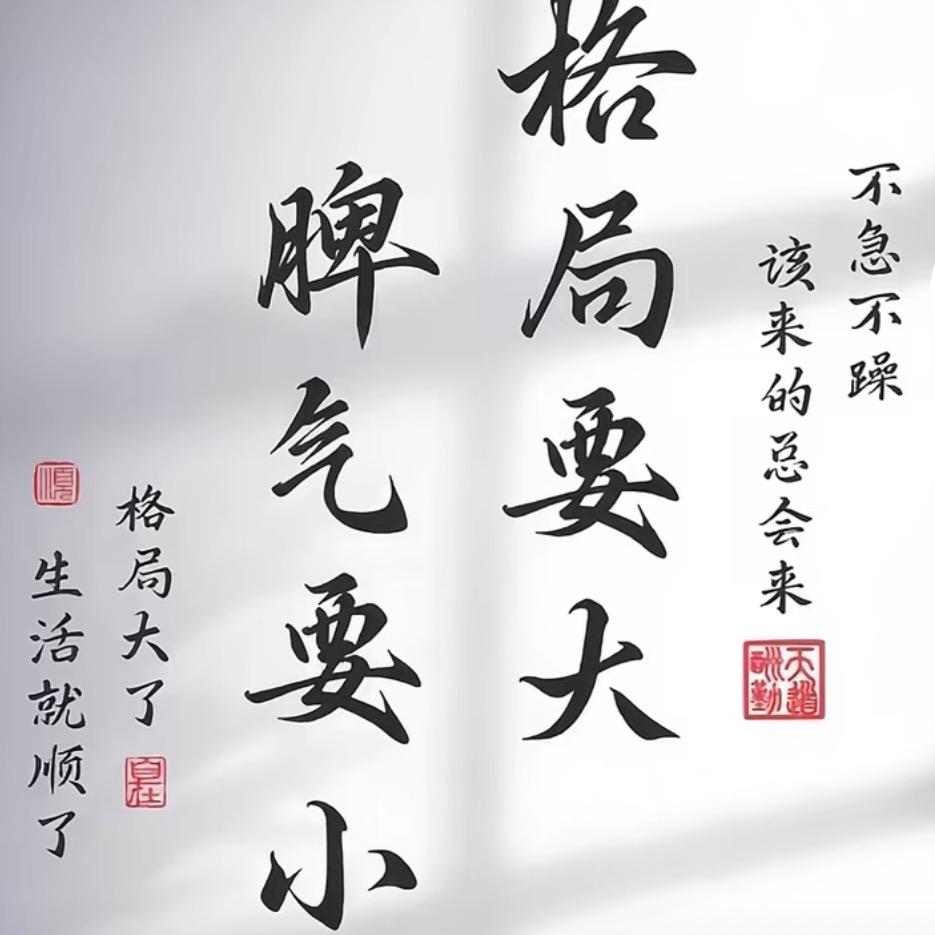 不急不躁
该来的总会来
天道酬勤
格局要大
脾气要小
格局大了
自在
生活就顺了
顺